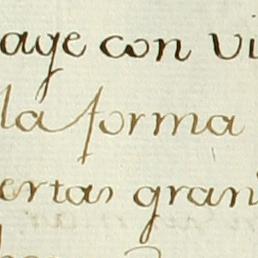 age con vi
la forma
ertas gran